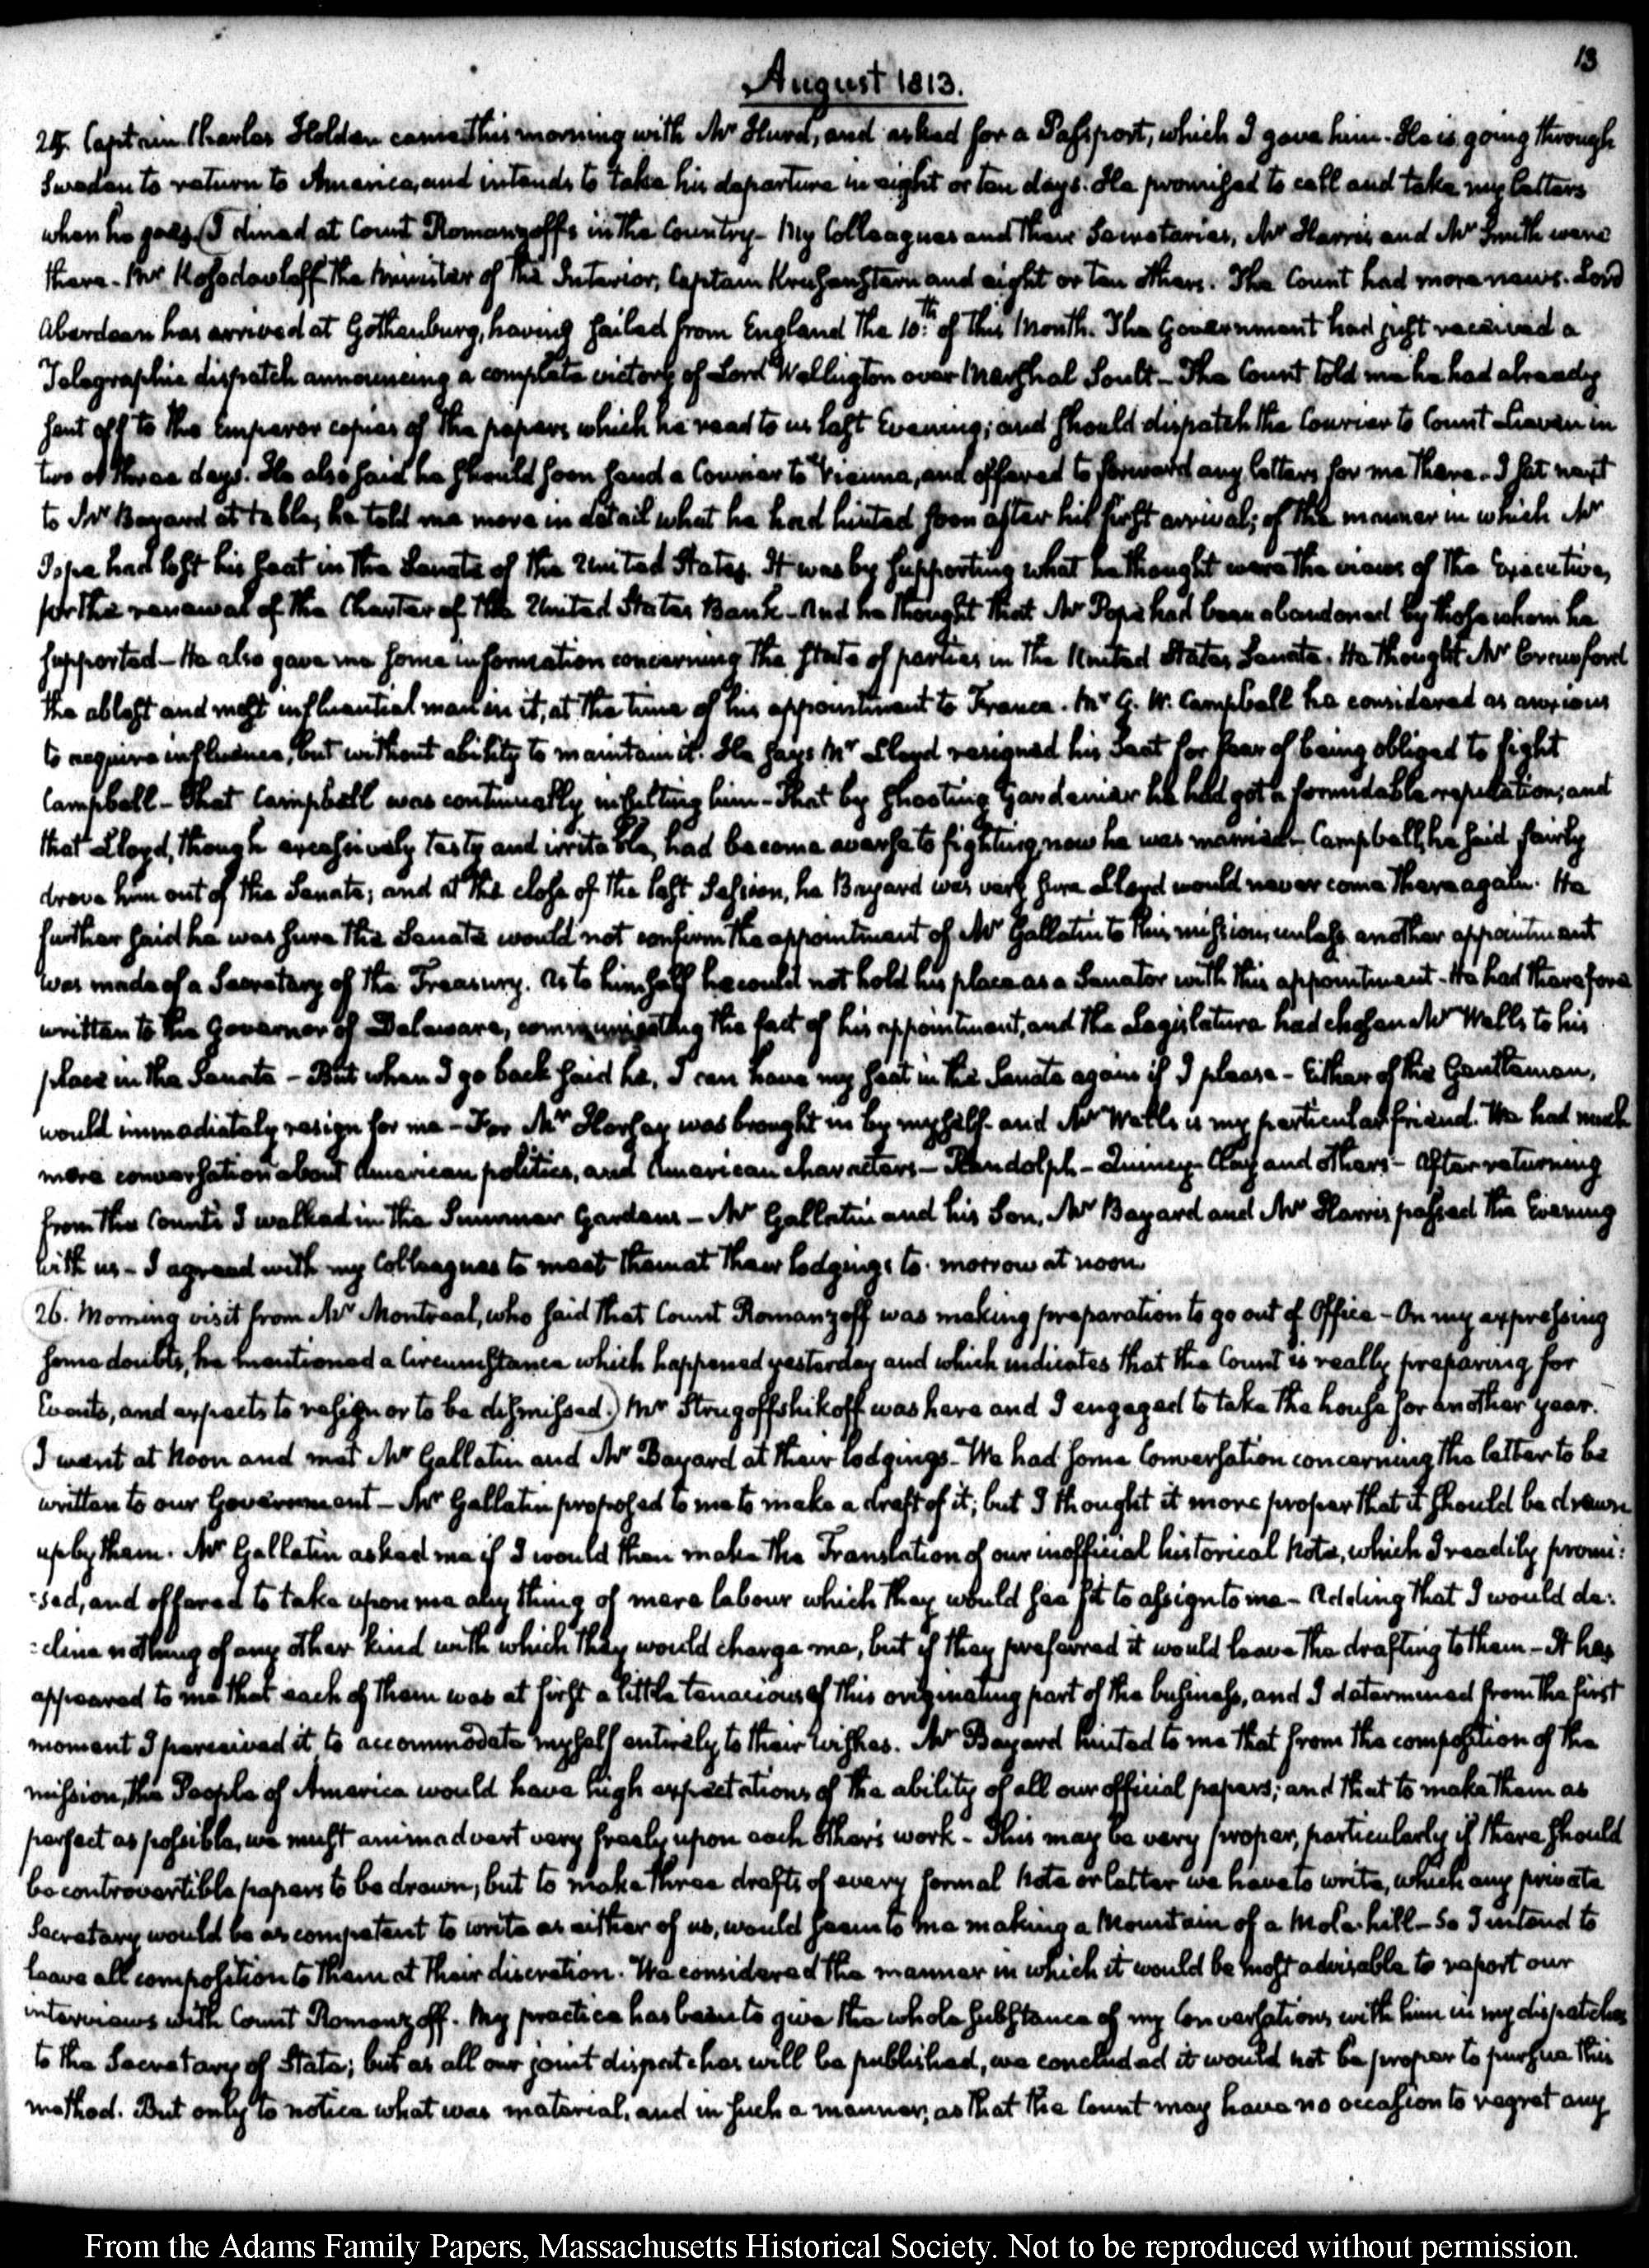 13
August 1813.
25. Captain Charles Holden came this morning with Mr Hurd, and asked for a Passport, which I gave him. He is going through
Sweden to return to America, and intends to take his departure in eight or ten days. He promised to call and take my letters
when he goes. (I dined at Count Romanzoff's in the Country - My Colleagues and their Secretaries, Mr Harris and Mr Smith were
there - Mr Kosodawleff the Minister of the Interior, Captain Krusenstern and eight or ten others. The Count had more news. Lord
Aberdeen has arrived at Gothenburg, having sailed from England the 10th. of this Month. The Government had just received a
Telegraphic dispatch announcing a complete victory of Lord Wellington over Marshal Soult - The Count told me he had already
sent off to the Emperor copies of the papers which he read to us last Evening; and should dispatch the Courier to Count Lieven in
two or three days. He also said he should soon send a Courier to Vienna, and offered to forward any letters for me there. I sat next
to Mr Bayard at table; he told me more in detail what he had hinted soon after his first arrival; of the manner in which Mr
Pope had lost his seat in the Senate of the United States. It was by supporting what he thought were the views of the Executive,
for the renewal of the Charter of the United States Bank - And he thought that Mr Pope had been abandoned by those whom he
supported - He also gave me some information concerning the state of parties in the United States Senate. He thought Mr Crawford
the ablest and most influential man in it, at the time of his appointment to France. Mr G. W. Campbell he considered as anxious
to acquire influence, but without ability to maintain it. He says Mr Lloyd resigned his Seat for fear of being obliged to fight
Campbell - That Campbell was continually insulting him - That by shooting Gardenier he had got a formidable reputation; and
that Lloyd, though excessively testy and irritable, had become averse to fighting, now he was married - Campbell, he said fairly
drove him out of the Senate; and at the close of the last Session, he Bayard was very sure Lloyd would never come there again. He
further said he was sure the Senate would not confirm the appointment of Mr Gallatin to this mission, unless another appointment
was made of a Secretary of the Treasury. As to himself he could not hold his place as a Senator with this appointment - He had therefore
written to the Governor of Delaware, communicating the fact of his appointment, and the Legislature had chosen Mr Wells to his
place in the Senate - But when I go back said he, I can have my seat in the Senate again if I please - Either of the Gentlemen,
would immediately resign for me - For Mr Horsey was brought in by myself - and Mr Wells is my particular friend. We had much
more conversation about American politics, and American characters - Randolph - Quincy - Clay and others - After returning
from the Count's I walked in the Summer Gardens - Mr Gallatin and his Son, Mr Bayard and Mr Harris passed the Evening
with us - I agreed with my Colleagues to meet them at their lodgings to-morrow at noon.
26. Morning visit from Mr Montreal, who said that Count Romanzoff was making preparation to go out of Office - On my expressing
some doubts, he mentioned a Circumstance which happened yesterday and which indicates that the Count is really preparing for
Events, and expects to resign or to be dismissed.) Mr Strugoffshikoff was here and I engaged to take the house for another year.
I went at Noon and met Mr Gallatin and Mr Bayard at their lodgings - We had some Conversation concerning the letter to be
written to our Government - Mr Gallatin proposed to me to make a draft of it; but I thought it more proper that it should be drawn
up by them. Mr Gallatin asked me if I would then make the Translation of our inofficial historical Note, which I readily promi:
:sed, and offered to take upon me any thing of mere labour which they would see fit to assign to me - Adding that I would de:
:cline nothing of any other kind with which they would charge me, but if they preferred it would leave the drafting to them - It has
appeared to me that each of them was at first a little tenacious of this originating part of the business, and I determined from the first
moment I perceived it to accommodate myself entirely to their wishes. Mr Bayard hinted to me that from the composition of the
mission, the People of America would have high expectations of the ability of all our official papers; and that to make them as
perfect as possible, we must animadvert very freely upon each other's work - This may be very proper, particularly if there should
be controvertible papers to be drawn; but to make three drafts of every formal Note or letter we have to write, which any private
Secretary would be as competent to write as either of us, would seem to me making a Mountain of a Mole-hill - So I intend to
leave all composition to them at their discretion. We considered the manner in which it would be most advisable to report our
interviews with Count Romanzoff. My practice has been to give the whole substance of my Conversations with him in my dispatches
to the Secretary of State; but as all our joint dispatches will be published, we concluded it would not be proper to pursue this
method. But only to notice what was material, and in such a manner, as that the Count may have no occasion to regret any
From the Adams Family Papers, Massachusetts Historical Society. Not to be reproduced without permission.